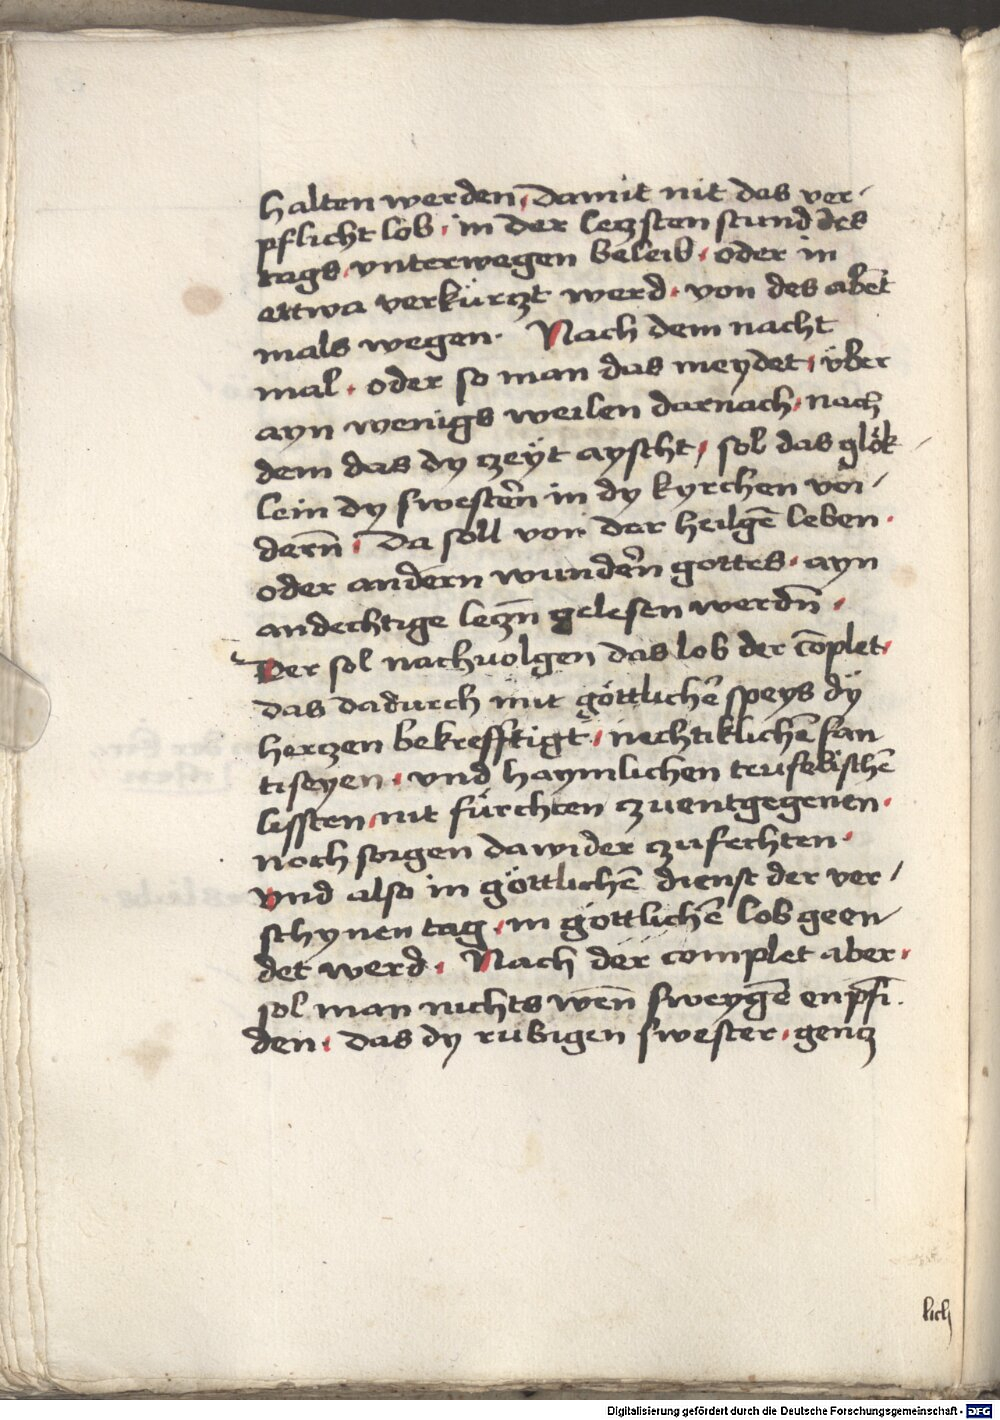 halten werden, damit nit das ver/
pflicht lob, in der leczsten stund des
tags, vnterwegen beleib, oder in
ettwa verkürczt werd, von des abēt
mals wegen. Nach dem nacht
mal, oder so man das meydet, v̈ber
ayn wenigs weilen darnach, nach
dem das dy czeÿt ayscht, sol das glök/
lein dy swestern̄ in dy kyrchen voi/
dern̄, Da soll von der heilgē leben,
oder andern wundern̄ gottes, ayn
andechtige leczn̄ gelesen werdn̄,
Der sol nachuolgen das lob der cōplet,
das dadurch mit göttlichē speys dÿ
herczen bekrefftigt, nechtiklichē fan
tiseyen, vnd haymlichen teufelischē
lissten, nit fürchten czuentgegenen,
noch sorgen dawider czufechten,
vnd also in göttlichē dienst der ver/
schynen tag, in göttlichē lob geen/
det werd, Nach der complet aber,
sol man nichts wēn sweygē enpfī.
den, das dy rubigen swester, gencz
lich
Digitalisierung gefördert durch die Deutsche Forschungsgemeinschaft - DFG